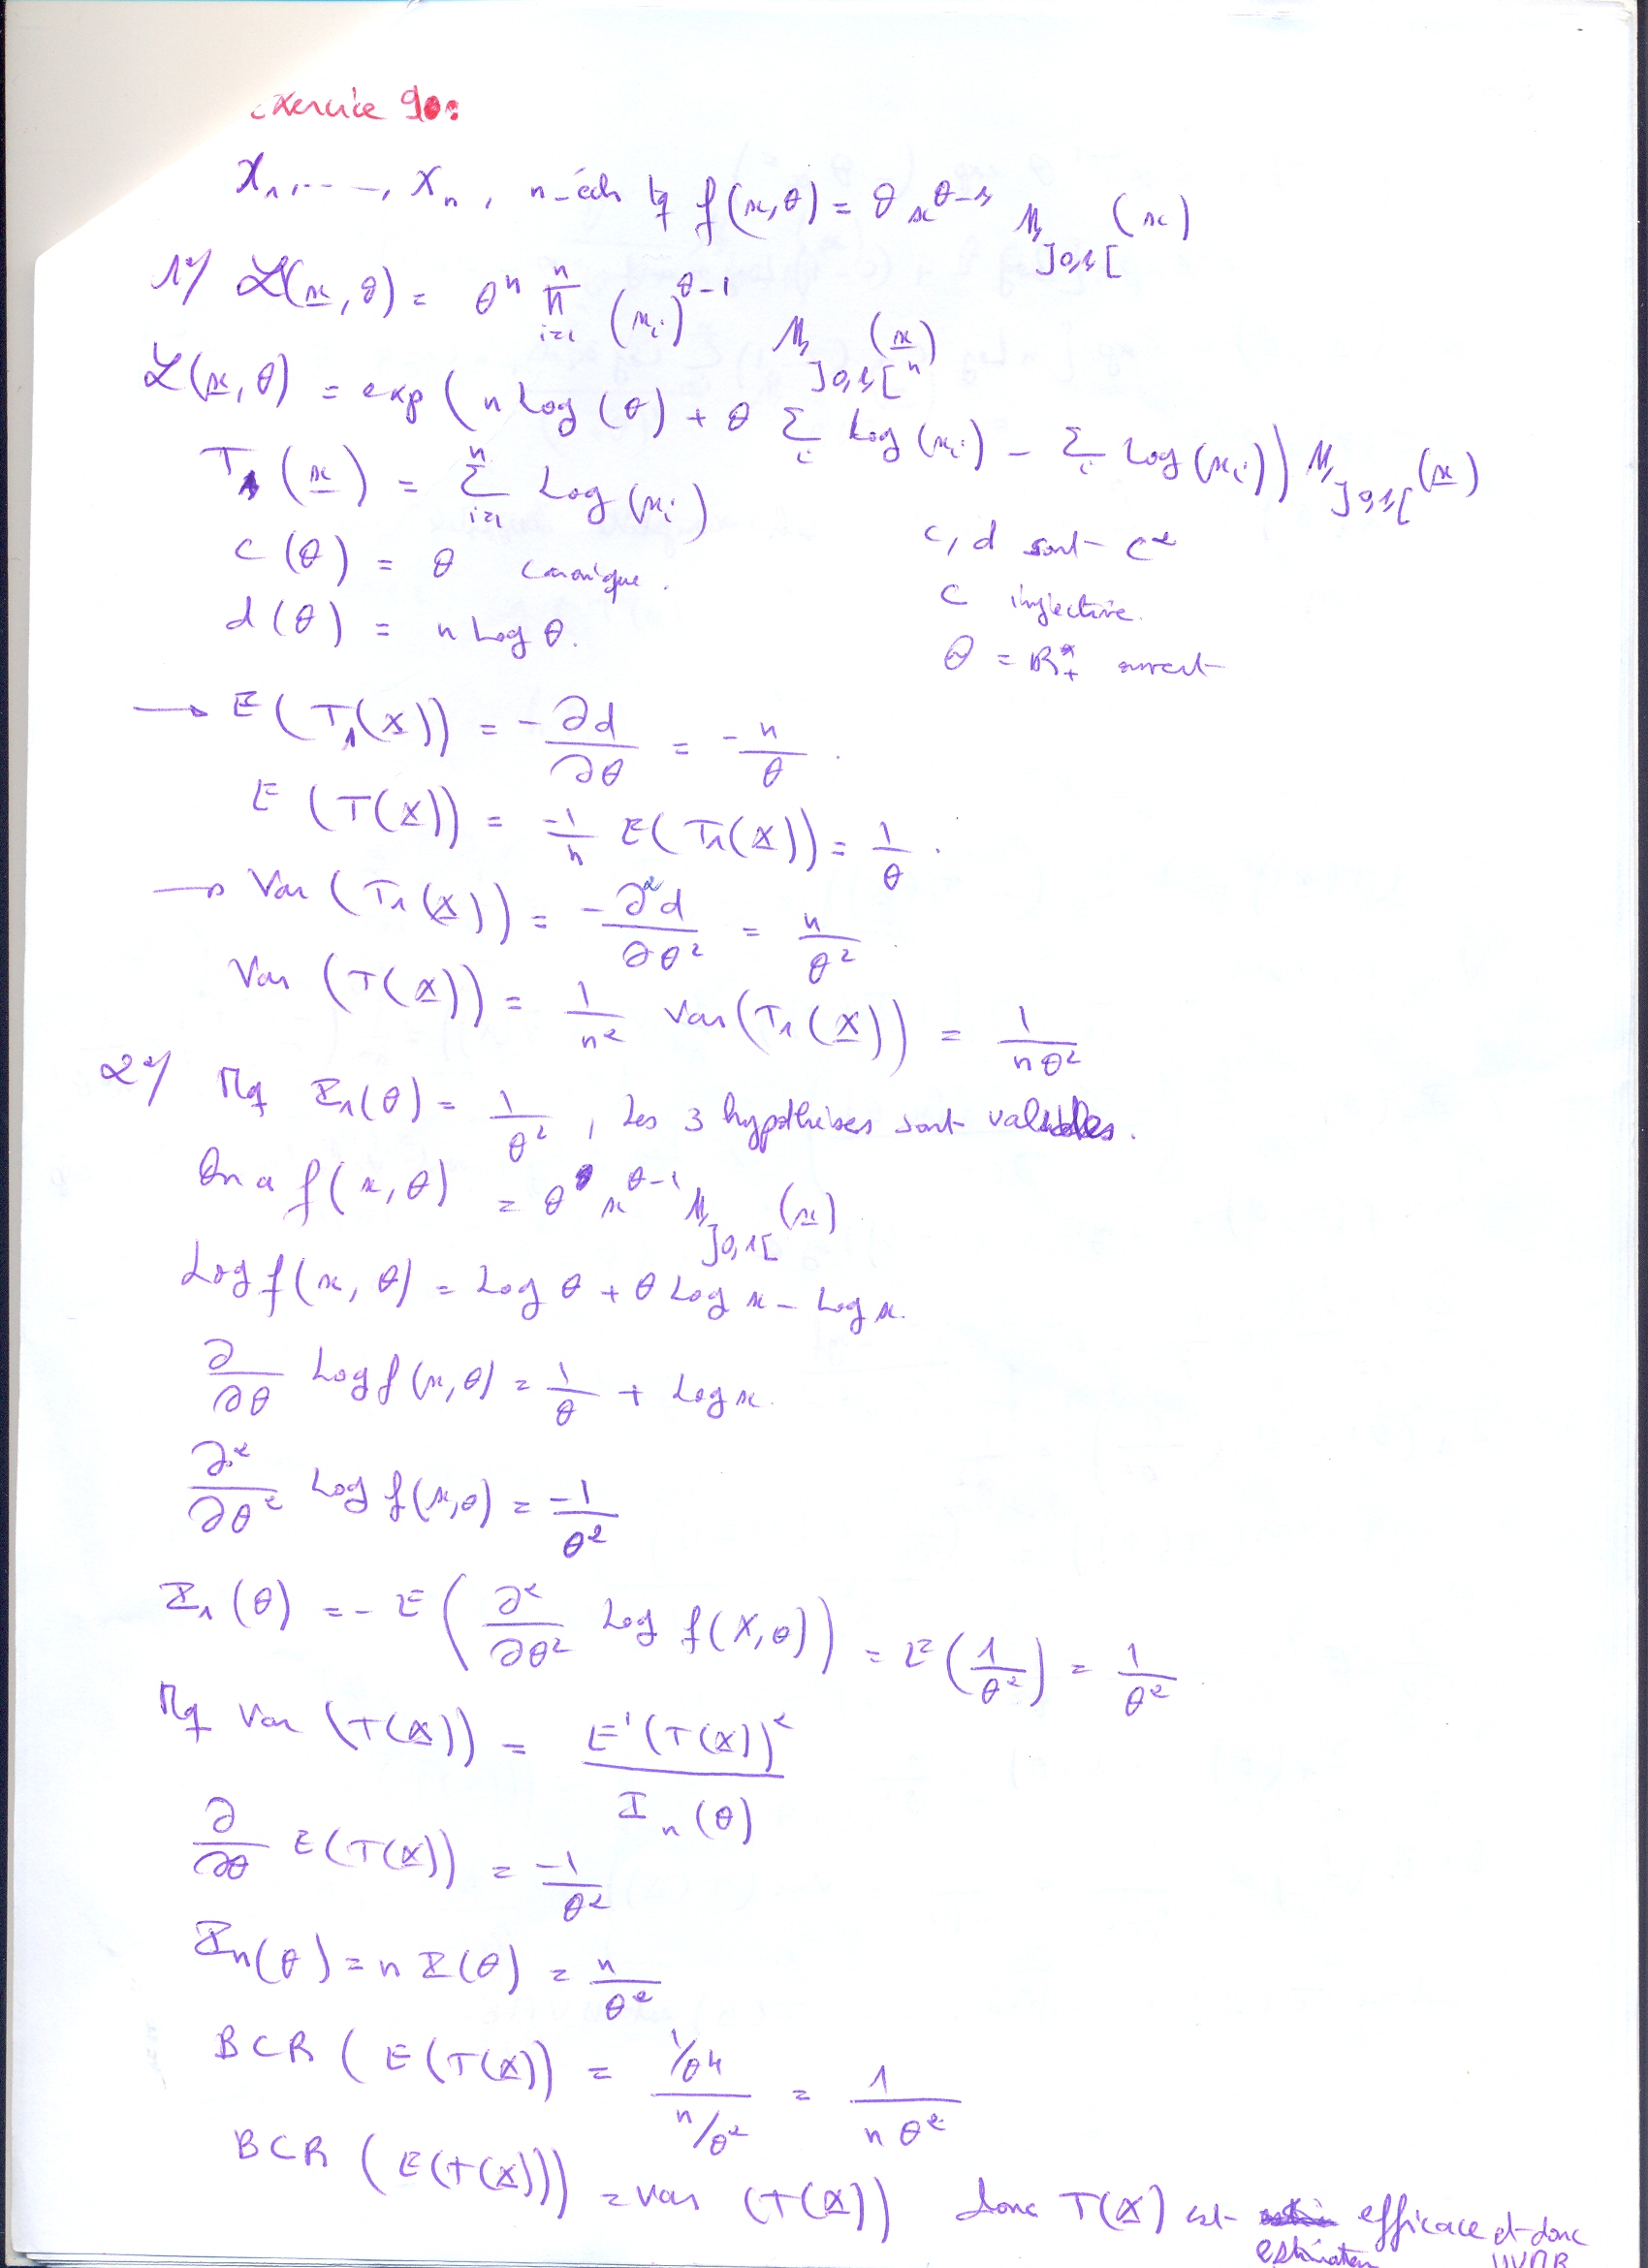 xercice 90:
X₁, ..., Xₙ, n-éch tq f(x,θ) = θ x^{θ-1} 𝟙_{]0,1[}(x)
1°/ ℒ(x,θ) = θⁿ ∏_{i=1}^{n} (xᵢ)^{θ-1} 𝟙_{]0,1[ⁿ}(x)
ℒ(x,θ) = exp(n Log(θ) + θ Σᵢ Log(xᵢ) - Σᵢ Log(xᵢ)) 𝟙_{]0,1[}(x)
T₁(x) = Σ_{i=1}^{n} Log(xᵢ)
c, d sont C²
C(θ) = θ canonique.
C injective.
d(θ) = n Log θ.
Θ = ℝ₊* ouvert
→ E(T₁(X)) = -∂d/∂θ = -n/θ.
E(T(X)) = -1/n E(T₁(X)) = 1/θ.
→ Var(T₁(X)) = -∂²d/∂θ² = n/θ²
Var(T(X)) = 1/n² Var(T₁(X)) = 1/nθ²
2°/ Mq I₁(θ) = 1/θ², Les 3 hypothèses sont valables.
On a f(x,θ) = θ x^{θ-1} 𝟙_{]0,1[}(x)
Log f(x,θ) = Log θ + θ Log x - Log x.
∂/∂θ Log f(x,θ) = 1/θ + Log x.
∂²/∂θ² Log f(x,θ) = -1/θ²
I₁(θ) = -E(∂²/∂θ² Log f(X,θ)) = E(1/θ²) = 1/θ²
Mq Var(T(X)) = E'(T(X))² / Iₙ(θ)
∂/∂θ E(T(X)) = -1/θ²
Iₙ(θ) = n I(θ) = n/θ²
BCR(E(T(X)) = (1/θ⁴)/(n/θ²) = 1/nθ²
BCR(E(T(X))) = var(T(X)) donc T(X) est efficace et donc
estimateur UVMB